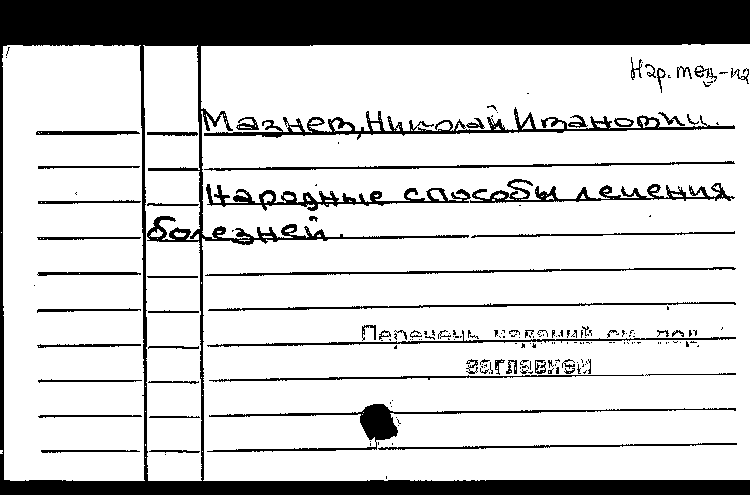 Нар. мед-на
Мазнев, Николай Иванович.
Народные способы лечения
болезней.
Перечень изданий см. под
заглавием